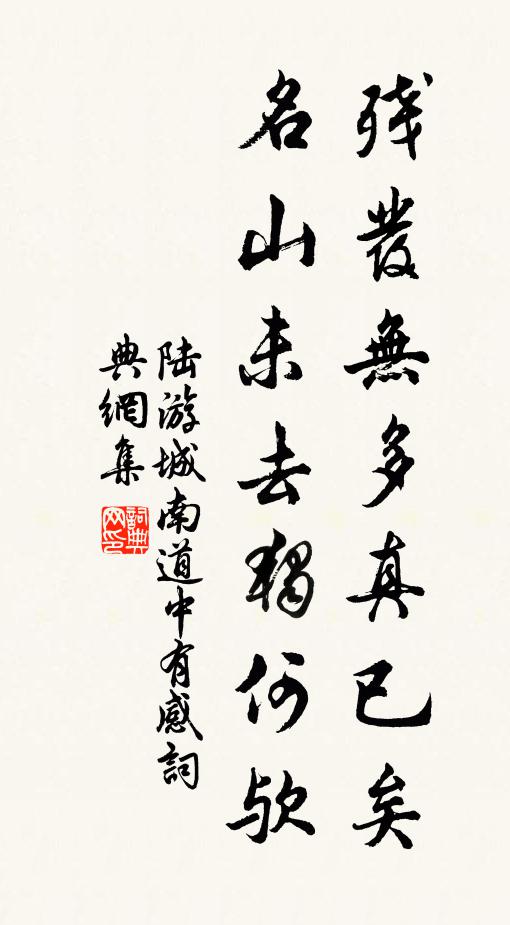 残發無多真已矣
名山未去獨何歟
陆游城南道中有感詞
典網集
詞典网印